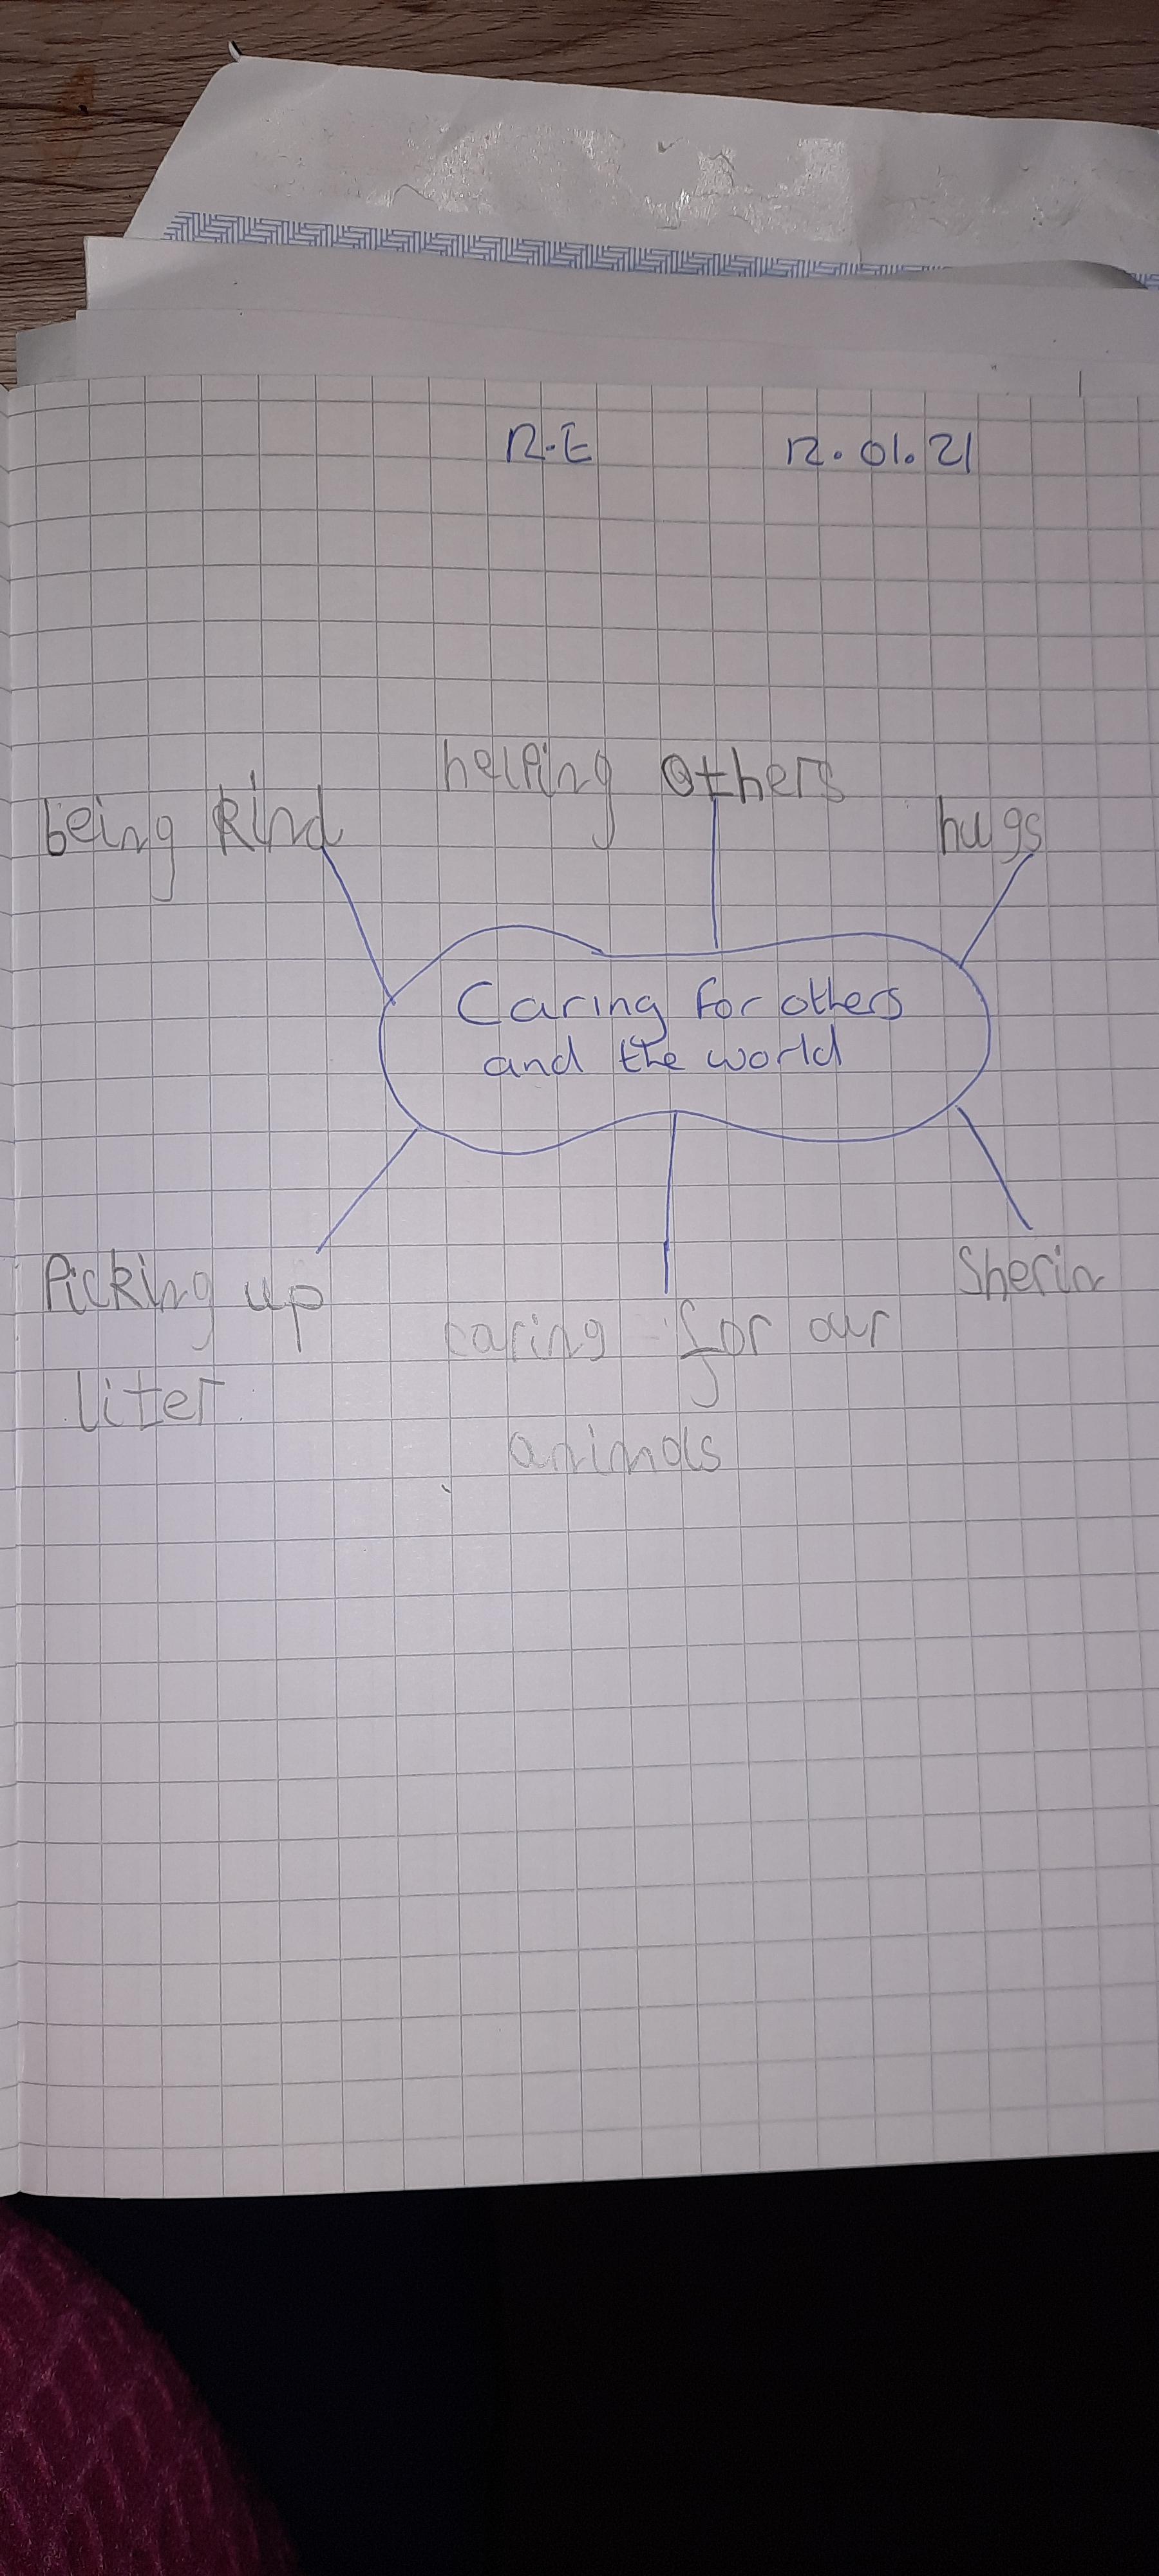 R.E 12.01.21
being kind
helping others
hugs
Caring for others
and the world
Picking up
liter
caring for our
animals
Sherin